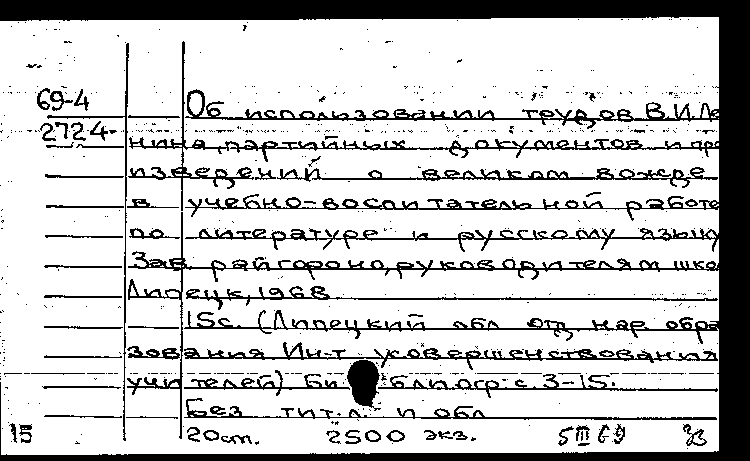 69-4
2724
Об использовании трудов В.И.Ле
нина, партийных документов и про
изведений о великом вожде
в учебно-воспитательной работе
по литературе и русскому языку
Зав. райгороно, руководителям шко
Липецк, 1968
15с. (Липецкий обл отд нар обра
зования Ин-т усовершенствования
учителей) Би блиогр: с. 3-15.
Без тит.л. и обл
15 20см. 2500 экз. 5 III 69